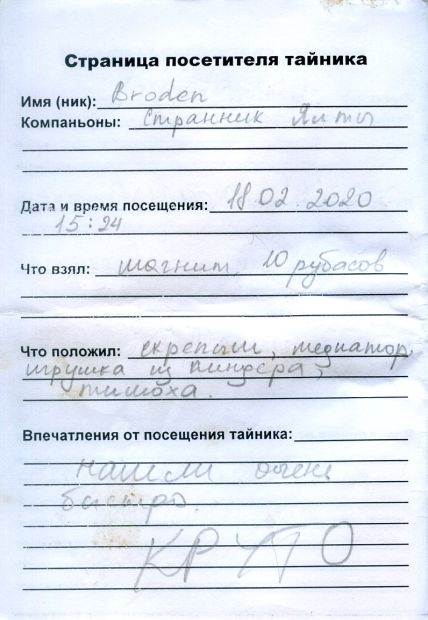 Страница посетителя тайника
Имя (ник): Broden
Компаньоны: Странник Ялты
Дата и время посещения: 18.02.2020
15:24
Что взял: магнит, 10 рубасов
Что положил: скрепыш, медиатор,
игрушка из киндера,
тимоха.
Впечатления от посещения тайника:
нашли очень
быстро.
КРУТО